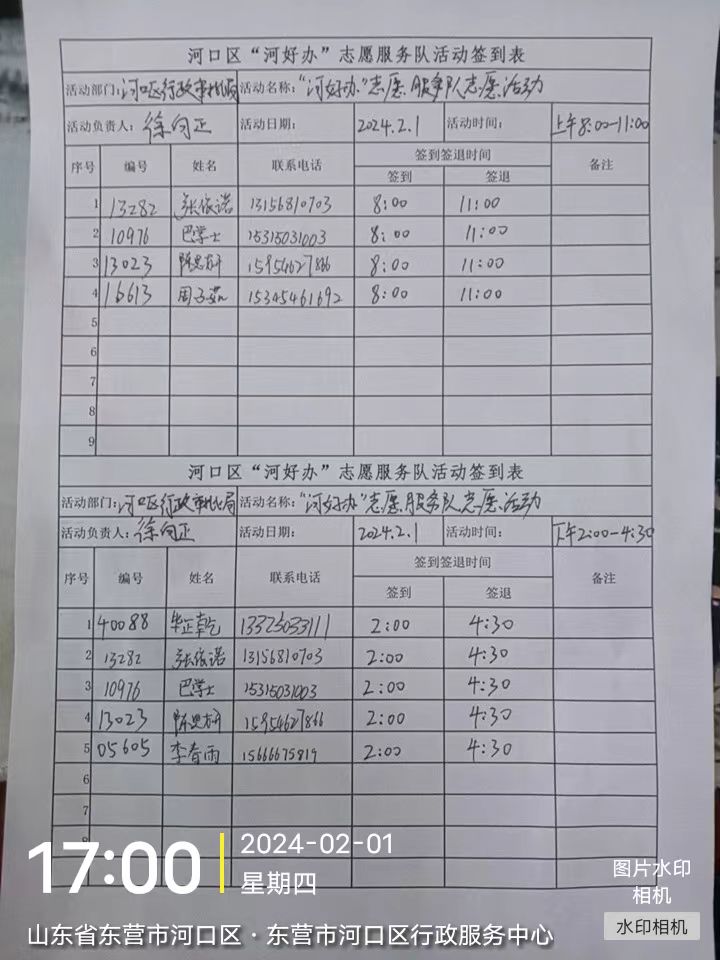 河口区“河好办”志愿服务队活动签到表
活动部门:河口区行政审批局 活动名称:“河好办”志愿服务队志愿活动
活动负责人:徐向正 活动日期: 2024.2.1 活动时间: 上午8:00-11:00
序号 编号 姓名 联系电话 签到签退时间 备注
签到 签退
1 13282 张依诺 13156810703 8:00 11:00
2 10976 巴学士 15315031003 8:00 11:00
3 13023 陈思妍 15954627866 8:00 11:00
4 16613 周子茹 15345461692 8:00 11:00
5
6
7
8
9
河口区“河好办”志愿服务队活动签到表
活动部门:河口区行政审批局 活动名称:“河好办”志愿服务队志愿活动
活动负责人:徐向正 活动日期: 2024.2.1 活动时间: 下午2:00-4:30
序号 编号 姓名 联系电话 签到签退时间 备注
签到 签退
1 40088 毕正乾 13325033111 2:00 4:30
2 13282 张依诺 13156810703 2:00 4:30
3 10976 巴学士 15315031003 2:00 4:30
4 13023 陈思妍 15954627866 2:00 4:30
5 05605 李春雨 15666675819 2:00 4:30
6
7
17:00 2024-02-01
星期四
山东省东营市河口区·东营市河口区行政服务中心
图片水印
相机
水印相机